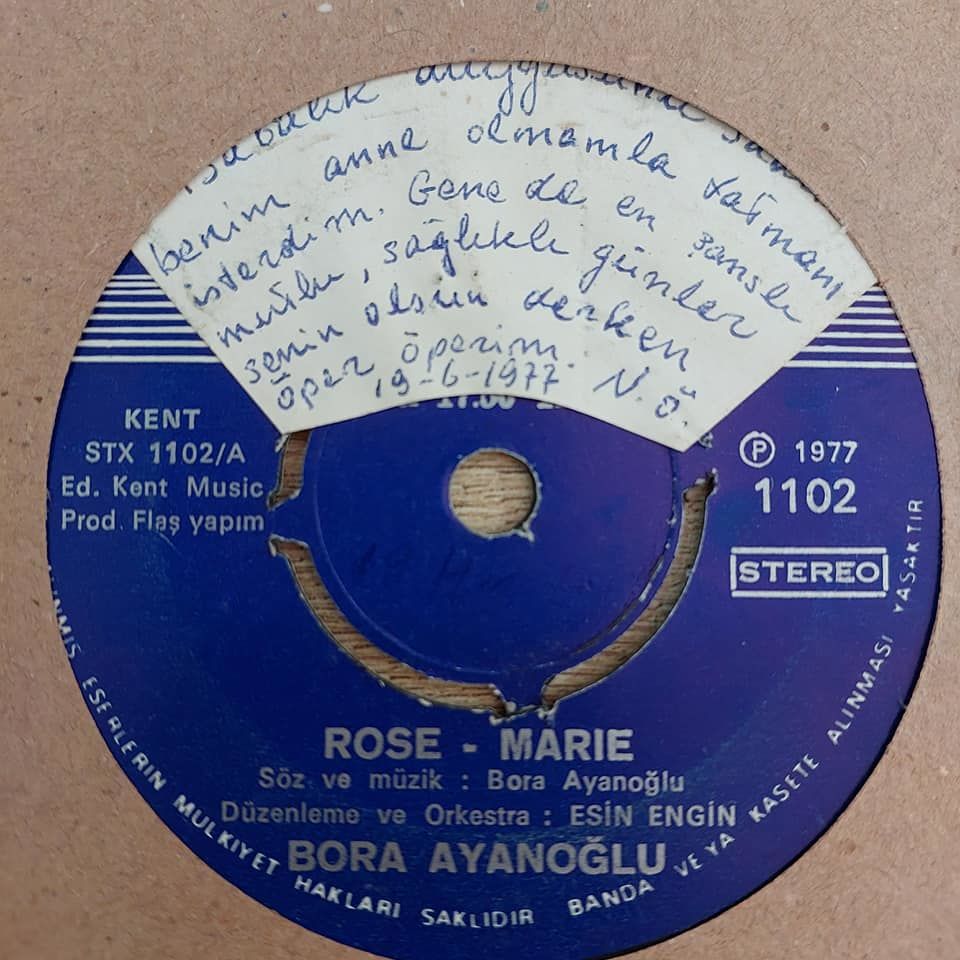 babalık duygusunu
benim anne olmamla tatmanı
isterdim. Gene de en şanslı
mutlu, sağlıklı günler
senin olsun derken
öper öperim. N.Ö
19-6-1977
KENT
STX 1102/A
Ed. Kent Music
Prod. Flaş yapım
P 1977
1102
STEREO
ROSE - MARIE
Söz ve müzik : Bora Ayanoğlu
Düzenleme ve Orkestra : ESİN ENGİN
BORA AYANOĞLU
ESERLERIN MULKIYET HAKLARI SAKLIDIR BANDA VE YA KASETE ALINMASI YASAKTIR